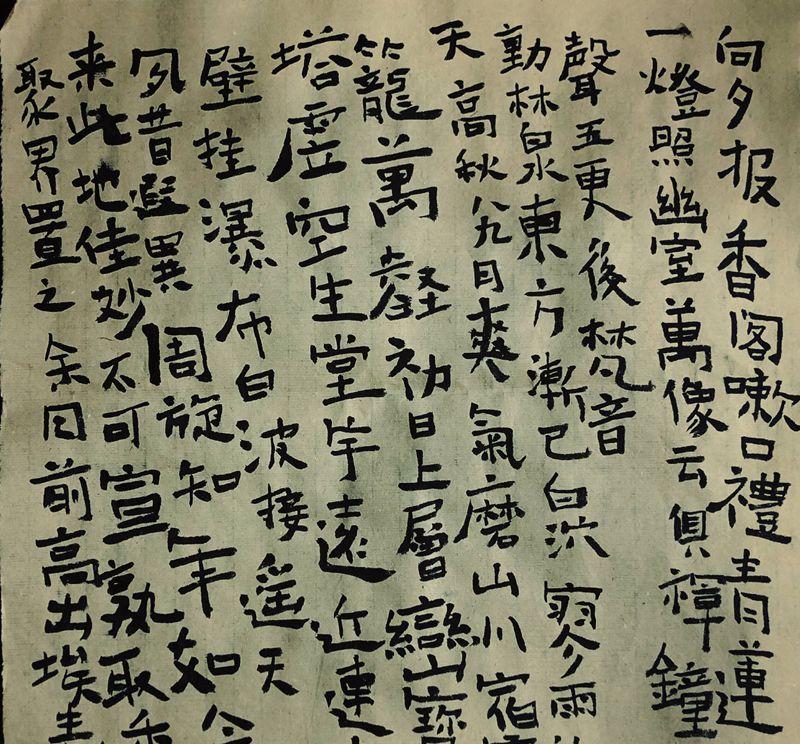 向夕报香阁嗽口禮青蓮
一燈照幽室萬像云俱禅鐘
聲五更後梵音
動林泉東方漸已白泬寥雨
天高秋八九月爽氣磨山川宿
籠萬壑初日上層巒寶
塔虛空生堂竿遠近連
壁挂瀑布白波接遥天
夙昔遐異周旋知年如今
来此地佳妙不可宣孰取
聚界置之余目前高出埃